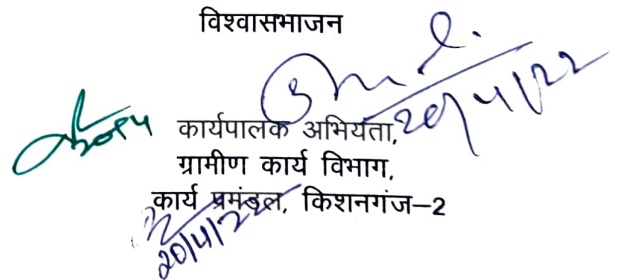 विश्वासभाजन
20/4/22
कार्यपालक अभियंता,
ग्रामीण कार्य विभाग,
कार्य प्रमंडल, किशनगंज–2
20/4/22